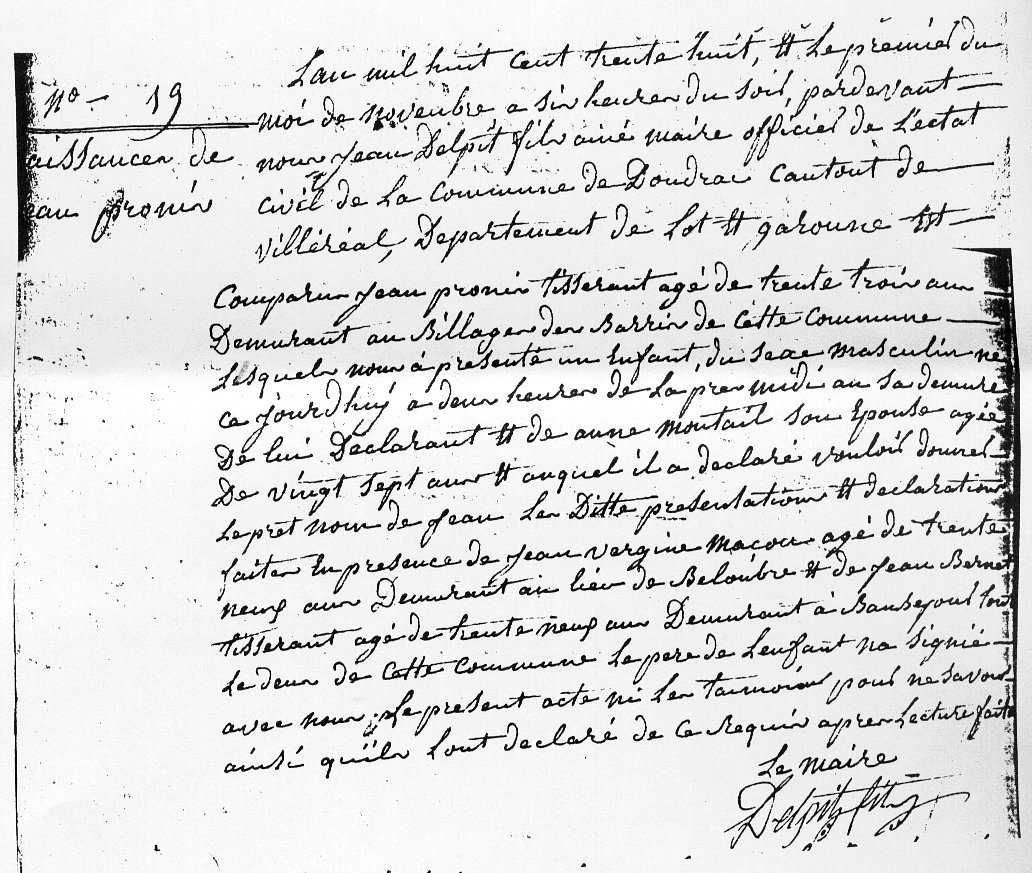 no - 19
aissances de
ean pronis
Lan mil huit cent trente huit, et le premier du
moi de novenbre a six heures du soir, pardevant
nous Jean Delpit fils ainé maire officier de l'ectat
civil de la commune de Doudrac cantont de
villéréal, Departement de Lot et garonne est
Comparus Jean pronis tisserant agé de trente trois ans
Demurant au Billages des Barris de cette commune
Lesquels nous à presenté un Enfant, du sexe masculin ne
ce jourdhuÿ a deux heures de la pres midi au sa demure
De lui Declarant et de anne montail son Epouse agée
De vingt sept ans et auquel il a declaré vouloir donner
le pret nom de Jean les Ditte presentations et declaration
faites En presence de Jean vergine macon agé de trente
neuf ans Demurant au lieu de Beloubre et de Jean Bernet
tisserant agé de trente neuf ans Demurant à Bausejour tout
Le deux de cette commune Le pere de Lenfant na signié
avec nous, Le present acte ni les taimoins pour ne savoir
ainsi quïls lont declaré de ce Requis apres Lecture faite
Le maire
Delpit fils